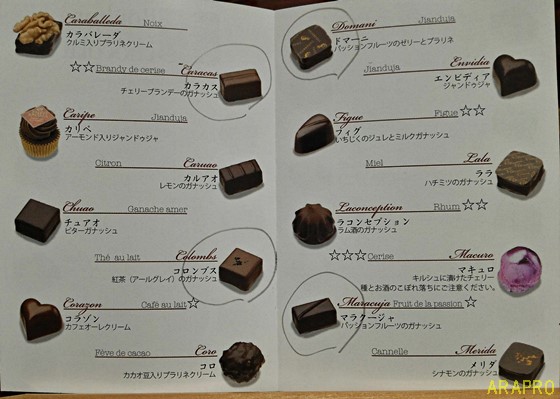 Caraballeda Noix
カラバレーダ
クルミ入りプラリネクリーム
☆☆Brandy de cerise Caracas
カラカス
チェリーブランデーのガナッシュ
Caripe Jianduja
カリペ
アーモンド入りジャンドゥジャ
Citron Caruao
カルアオ
レモンのガナッシュ
Chuao Ganache amer
チュアオ
ビターガナッシュ
Thé au lait Colombs
コロンブス
紅茶（アールグレイ）のガナッシュ
Corazon Café au lait☆
コラソン
カフェオーレクリーム
Fève de cacao Coro
コロ
カカオ豆入りプラリネクリーム
Domani Jianduja
ドマーニ
パッションフルーツのゼリーとプラリネ
Jianduja Envidia
エンビディア
ジャンドゥジャ
Figue Figue☆☆
フィグ
いちじくのジュレとミルクガナッシュ
Miel Lala
ララ
ハチミツのガナッシュ
Laconception Rhum☆☆
ラコンセプション
ラム酒のガナッシュ
☆☆☆Cerise Macuro
マキュロ
キルシュに漬けたチェリー
種とお酒のこぼれ落ちにご注意ください。
Maracuja Fruit de la passion☆
マラクージャ
パッションフルーツのガナッシュ
Cannelle Merida
メリダ
シナモンのガナッシュ
ARAPRO